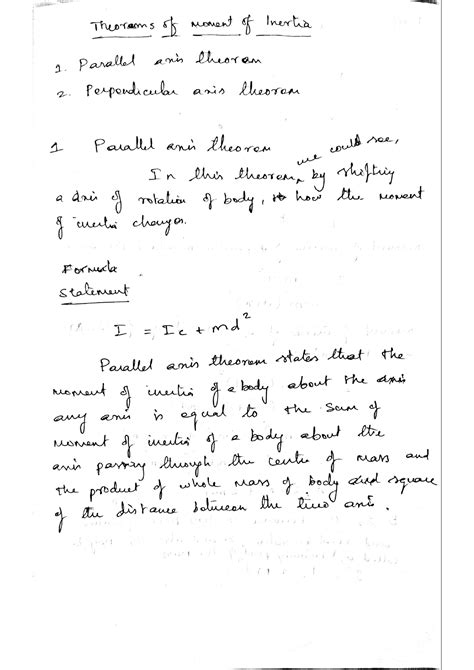 Theorams of moment of Inertia
1. Parallel axis theoram
2. Perpendicular axis theoram
1 Parallel axis theoram
In this theoram, we could see, by shifting
a axis of rotation of body, how the moment
of inertia changes.
Formula
Statement
I = Ic + md²
Parallel axis theoram states that the
moment of inertia of a body about the axis
any axis is equal to the sum of
moment of inertia of a body about the
axis passing through the centre of mass and
the product of whole mass of body and square
of the distance between the axis.